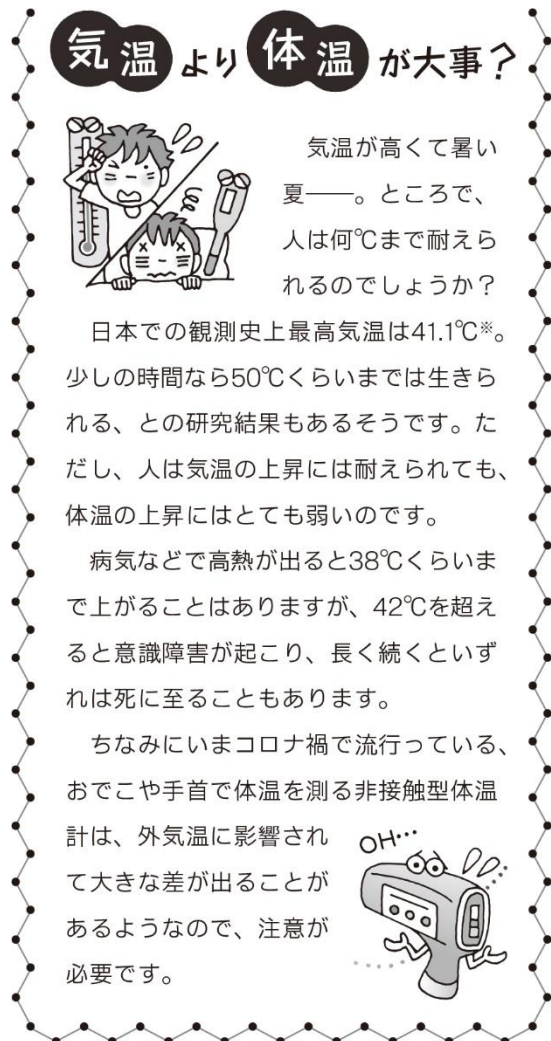 気温より体温が大事？
気温が高くて暑い
夏――。ところで、
人は何℃まで耐えら
れるのでしょうか？
日本での観測史上最高気温は41.1℃※。
少しの時間なら50℃くらいまでは生きら
れる、との研究結果もあるそうです。た
だし、人は気温の上昇には耐えられても、
体温の上昇にはとても弱いのです。
病気などで高熱が出ると38℃くらいま
で上がることはありますが、42℃を超え
ると意識障害が起こり、長く続くといず
れは死に至ることもあります。
ちなみにいまコロナ禍で流行っている、
おでこや手首で体温を測る非接触型体温
計は、外気温に影響され
て大きな差が出ることが
あるようなので、注意が
必要です。
OH…